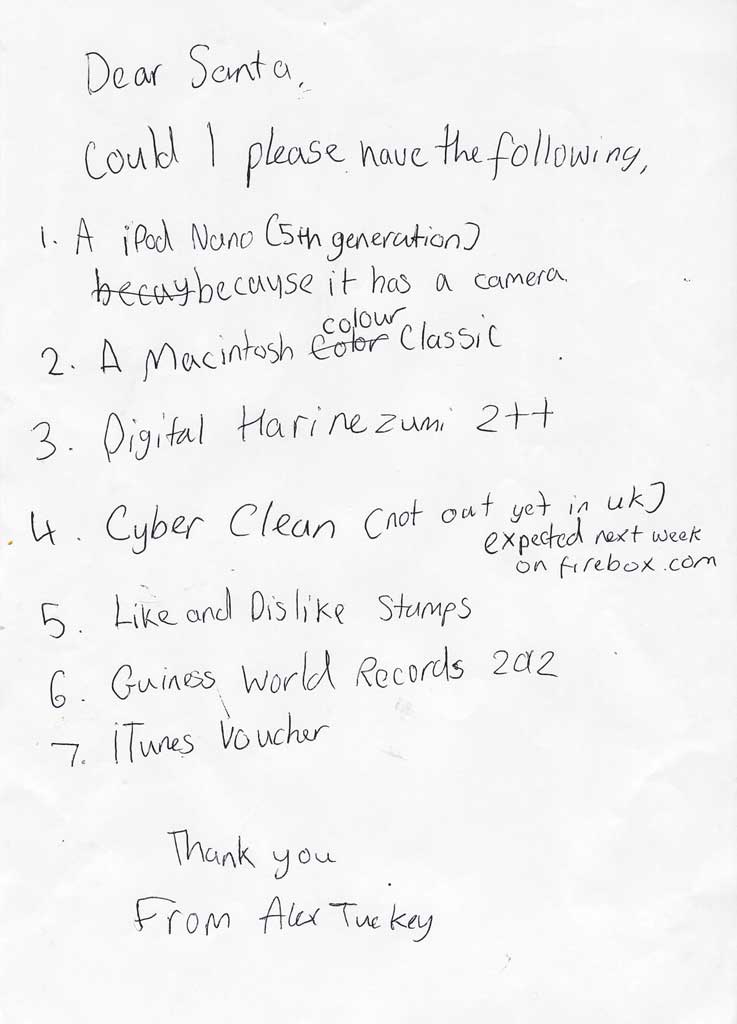 Dear Santa,
Could I please have the following,
1. A iPod Nano (5th generation)
becauy because it has a camera.
colour
2. A Macintosh Color Classic
3. Digital Harinezumi 2++
4. Cyber Clean (not out yet in uk)
expected next week
on firebox.com
5. Like and Dislike Stamps
6. Guiness World Records 2012
7. iTunes Voucher
Thank you
From Alex Tuckey